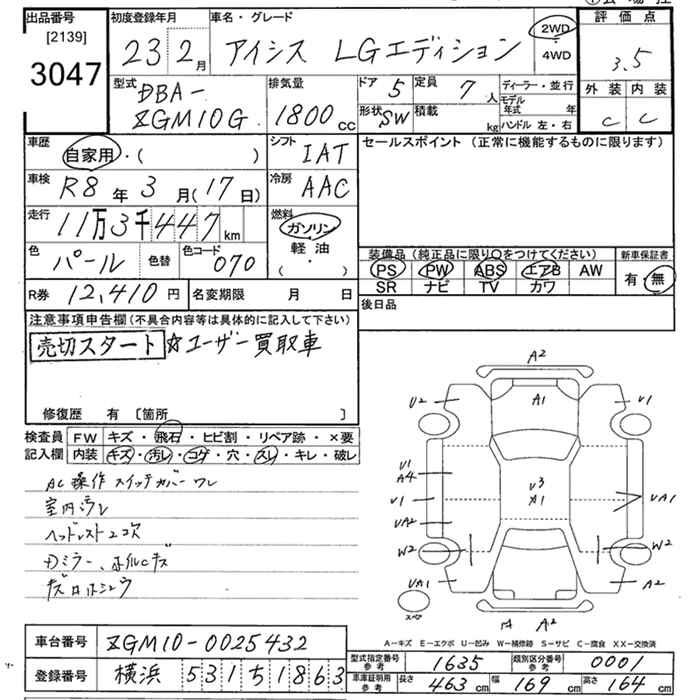 出品番号
[2139]
3047
初度登録年月
23 2月
車名・グレード
アイシス LGエディション
2WD
4WD
評価点
3.5
外装 内装
C C
型式
DBA-
ZGM10G
排気量
1800cc
ドア 5
定員 7人
形状 SW
積載 kg
ディーラー・並行
モデル年式 年
ハンドル 左・右
車歴
自家用・( )
シフト
IAT
車検
R8年3月(17日)
冷房
AAC
走行
11万3千447km
燃料
ガソリン
軽油
( ・ )
色 パール
色替
色コード 070
R券 12,410円
名変期限 月 日
セールスポイント (正常に機能するものに限ります)
装備品(純正品に限り○をつけてください)
PS PW ABS エアB AW
SR ナビ TV カワ
新車保証書
有・無
後日品
注意事項申告欄(不具合内容等は具体的に記入して下さい)
売切スタート ☆ユーザー買取車
修復歴 有 [箇所 ]
検査員記入欄
FW キズ・飛石・ヒビ割・リペア跡・×要
内装 キズ・汚レ・コゲ・穴・スレ・キレ・破レ
AC操作スイッチカバーワレ
室内汚レ
ヘッドレスト2コ欠
A2
U2
A1
V1
V1
A4
V3
A1
V1
UA1
UA2
W2
W2
UA1
A2
スペア
A2
A-キズ E-エクボ U-凹み W-補修跡 S-サビ C-腐食 XX-交換済
車台番号 ZGM10-0025432
登録番号 横浜 531 5 1863
型式指定番号 参考 1635
類別区分番号 参考 0001
車庫証明用 参考 長さ 463cm 幅 169cm 高さ 164cm